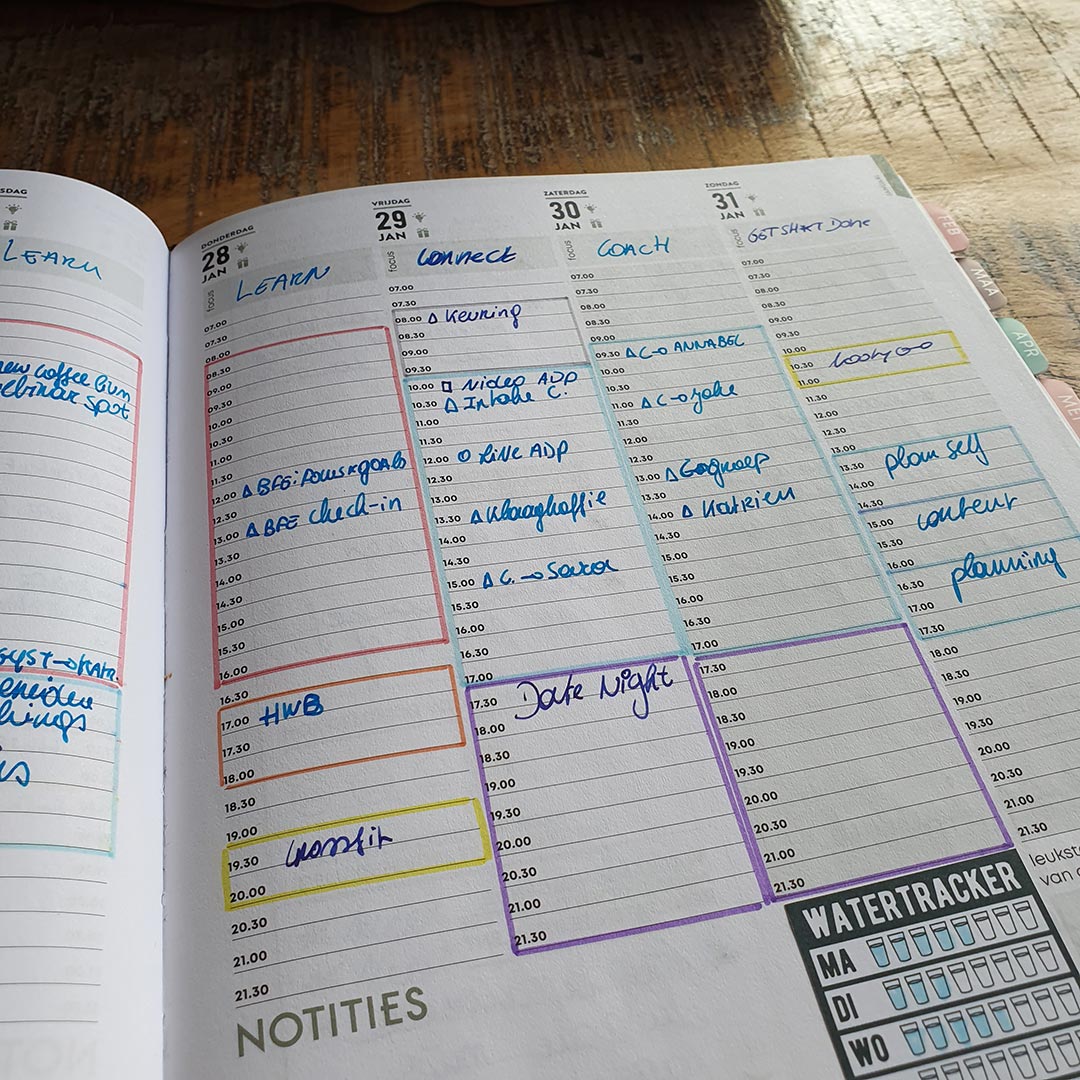 SDAG
LEARN
new coffee
webinar spot
DONDERDAG
28
JAN
focus
LEARN
07.00
07.30
08.00
08.30
09.00
09.30
10.00
10.30
11.00
11.30
12.00 Δ BFE: FOCUS & GOALS
12.30
13.00 Δ BFE check-in
13.30
14.00
14.30
15.00
15.30
16.00
16.30
17.00 HWB
17.30
18.00
18.30
19.00
19.30 Crossfit
20.00
20.30
21.00
21.30
NOTITIES
VRIJDAG
29
JAN
focus
CONNECT
07.00
07.30
08.00 Δ Keuring
08.30
09.00
10.00 □ Video ADP
10.30 Δ Intake C.
11.00
12.00 O LIVE ADP
12.30
13.00
13.30 Δ Klaagkoffie
14.00
14.30
15.00 Δ C. →
15.30
16.00
16.30
17.00
17.30 Date Night
18.00
18.30
19.00
19.30
20.00
20.30
21.00
21.30
ZATERDAG
30
JAN
focus
COACH
07.00
07.30
08.00
08.30
09.00
09.30 Δ C→ ANNABEL
10.00
10.30
11.00 Δ C→
11.30
12.00
12.30
13.00 Δ
13.30
14.00 Δ Katrien
14.30
15.00
15.30
16.00
16.30
17.00
17.30
18.00
18.30
19.00
19.30
20.00
20.30
21.00
21.30
ZONDAG
31
JAN
focus
GET SH*T Done
07.00
07.30
08.00
08.30
09.00
09.30
10.00
10.30
11.00
11.30
12.00
12.30
13.00
13.30 plan self
14.00
14.30
15.00 content
15.30
16.00
16.30 planning
17.00
17.30
18.00
18.30
19.00
19.30
20.00
20.30
21.00
21.30
van
WATERTRACKER
MA
DI
WO
FEB
MAA
APR
ME